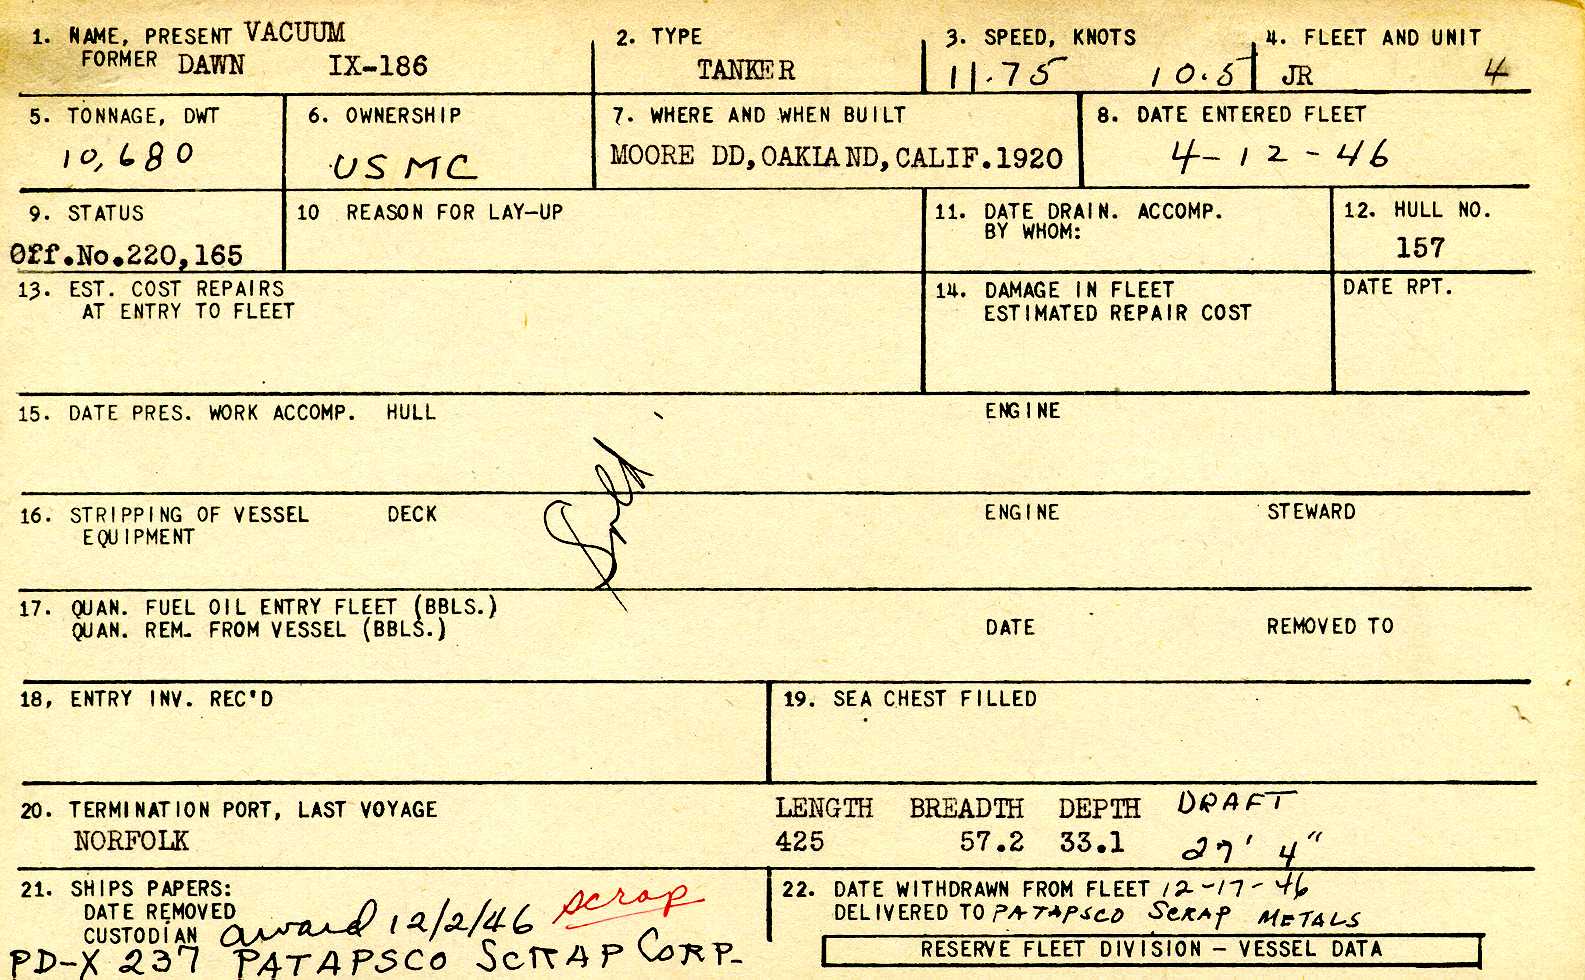 1. NAME, PRESENT VACUUM
FORMER DAWN IX-186
2. TYPE
TANKER
3. SPEED, KNOTS
11.75 10.5
4. FLEET AND UNIT
JR 4
5. TONNAGE, DWT
10,680
6. OWNERSHIP
USMC
7. WHERE AND WHEN BUILT
MOORE DD, OAKLAND, CALIF. 1920
8. DATE ENTERED FLEET
4-12-46
9. STATUS
Off.No.220,165
10 REASON FOR LAY-UP
11. DATE DRAIN. ACCOMP.
BY WHOM:
12. HULL NO.
157
13. EST. COST REPAIRS
AT ENTRY TO FLEET
14. DAMAGE IN FLEET
ESTIMATED REPAIR COST
DATE RPT.
15. DATE PRES. WORK ACCOMP. HULL ENGINE
16. STRIPPING OF VESSEL DECK ENGINE STEWARD
EQUIPMENT
17. QUAN. FUEL OIL ENTRY FLEET (BBLS.)
QUAN. REM. FROM VESSEL (BBLS.) DATE REMOVED TO
18, ENTRY INV. REC'D
19. SEA CHEST FILLED
20. TERMINATION PORT, LAST VOYAGE
NORFOLK
LENGTH BREADTH DEPTH DRAFT
425 57.2 33.1 27' 4"
21. SHIPS PAPERS:
DATE REMOVED
CUSTODIAN award 12/2/46 scrap
PD-X 237 PATAPSCO SCRAP CORP.
22. DATE WITHDRAWN FROM FLEET 12-17-46
DELIVERED TO PATAPSCO SCRAP METALS
RESERVE FLEET DIVISION – VESSEL DATA